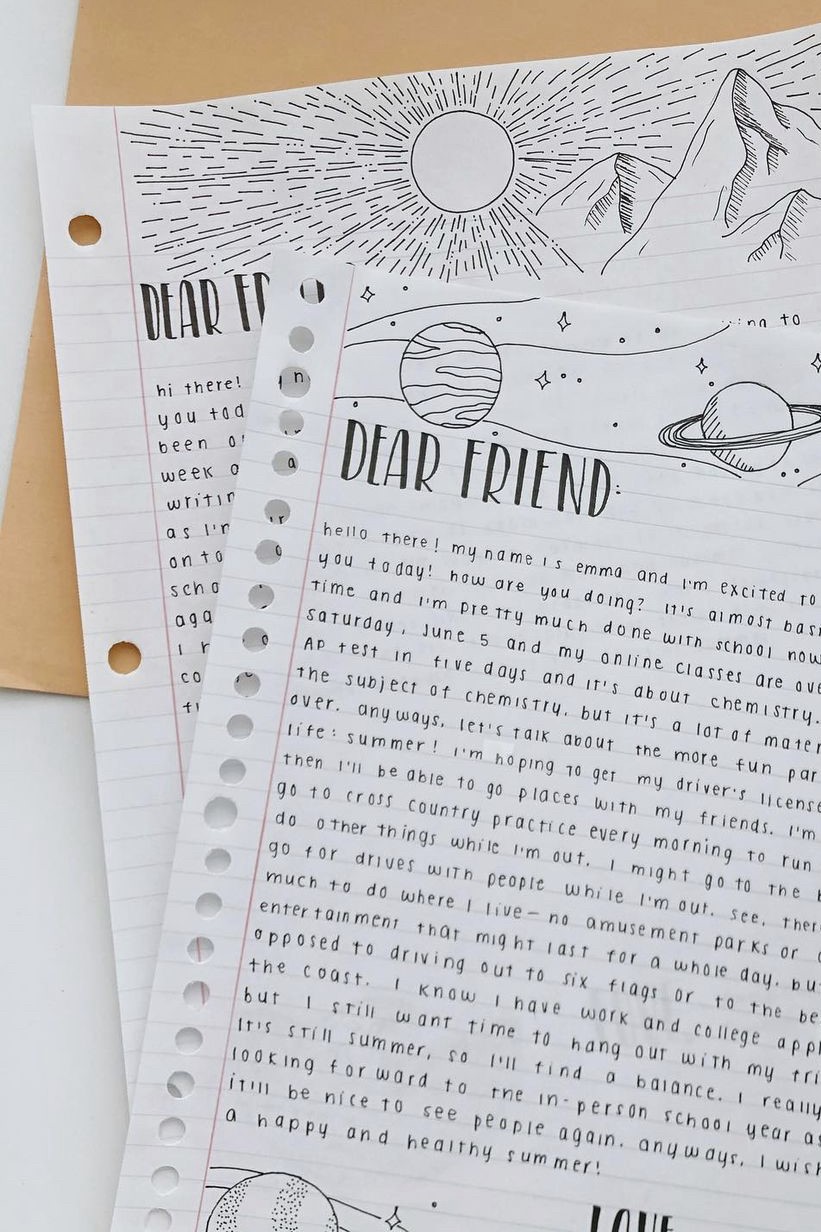 DEAR
hi there!
you tod
been
week
writin
as i'm
onto
scho
aga
I
co
to
DEAR FRIEND:
hello there! my name is emma and i'm excited to
you today! how are you doing? it's almost
time and i'm pretty much done with school now
saturday, june 5 and my online classes are
AP test in five days and it's about chemistry.
the subject of chemistry, but it's a lot of
over. anyways, let's talk about the more fun
life: summer! i'm hoping to get my driver's license
then i'll be able to go places with my friends. i'm
go to cross country practice every morning to run
do other things while i'm out. i might go to the
go for drives with people while i'm out. see,
much to do where i live— no amusement parks or
entertainment that might last for a whole day,
opposed to driving out to six flags or to the
the coast. i know i have work and college
but i still want time to hang out with my
it's still summer, so i'll find a balance. i really
looking forward to the in-person school year
it'll be nice to see people again. anyways, i
a happy and healthy summer!
LOVE